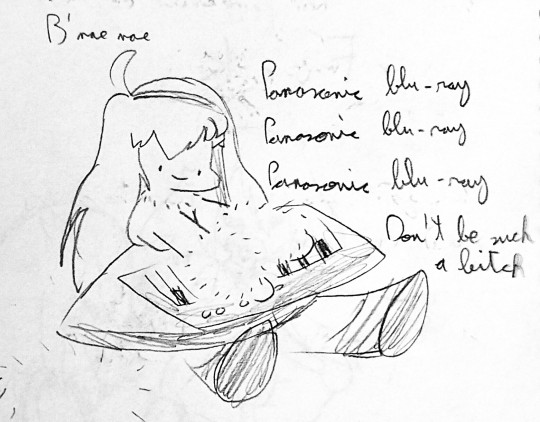 B'nae nae
Panasonic blu-ray
Panasonic blu-ray
Panasonic blu-ray
Don't be such
a bitch